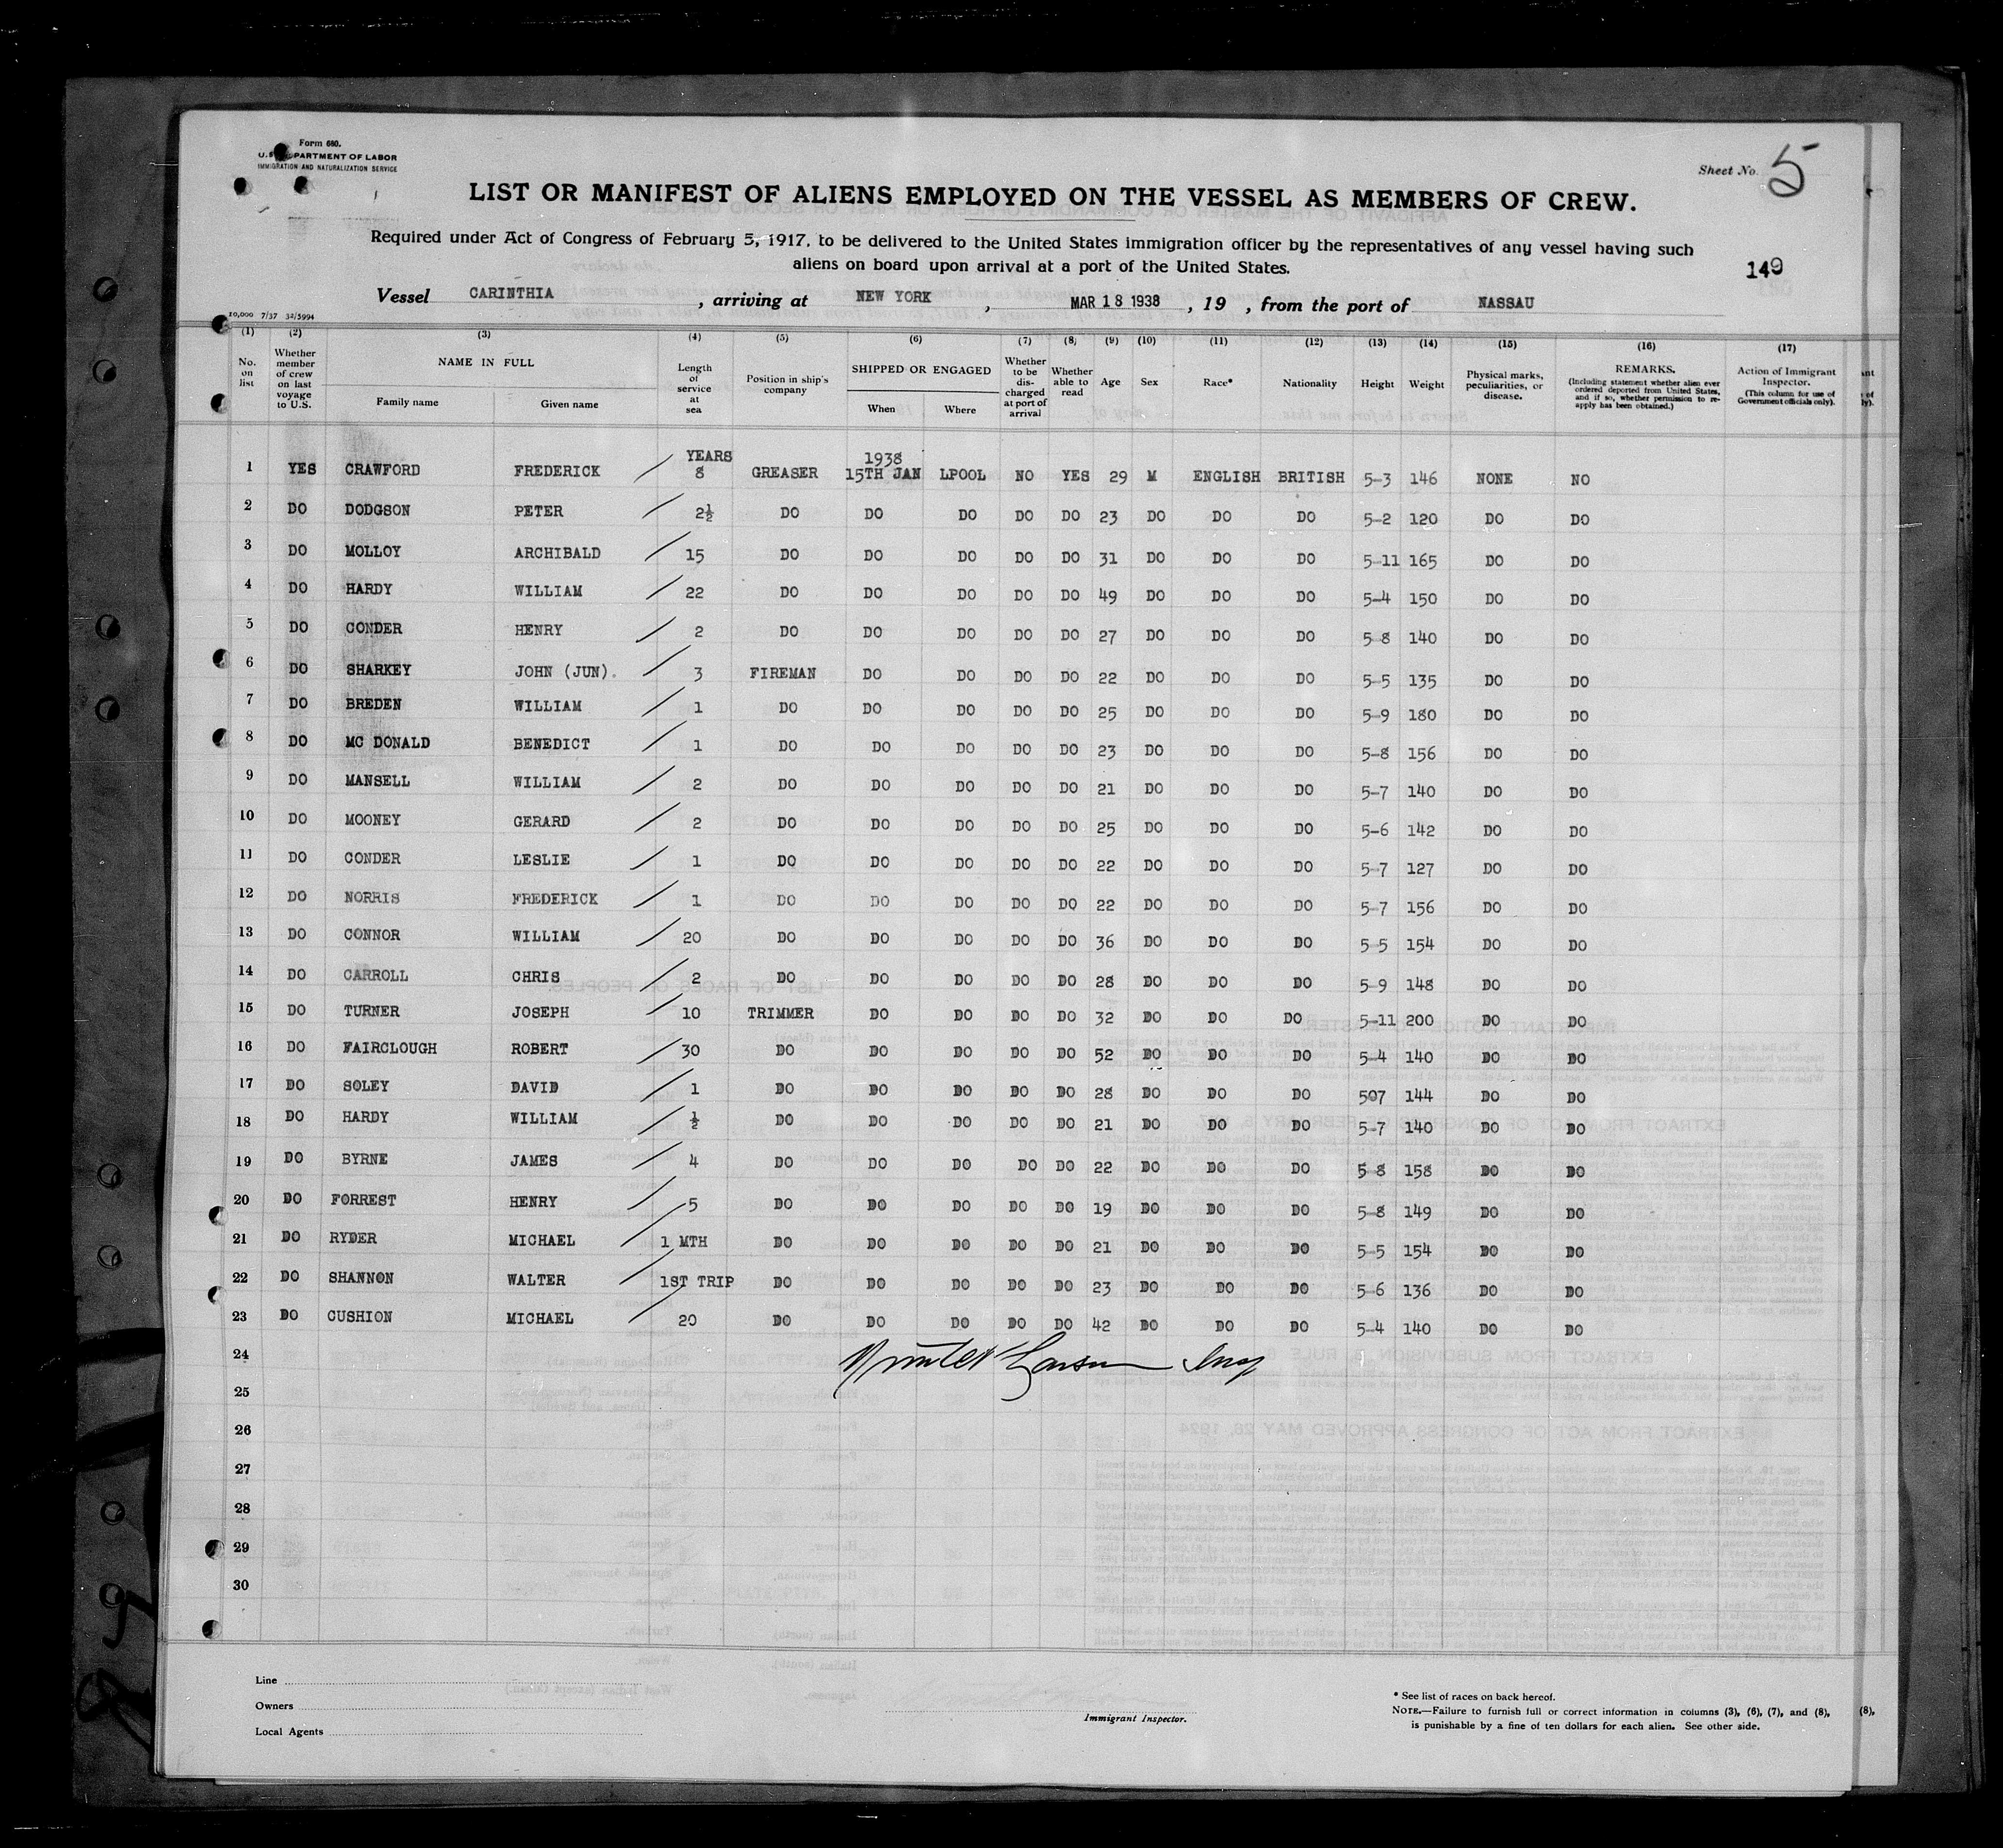 Form 680.
U.S. DEPARTMENT OF LABOR
IMMIGRATION AND NATURALIZATION SERVICE
Sheet No. 5
LIST OR MANIFEST OF ALIENS EMPLOYED ON THE VESSEL AS MEMBERS OF CREW.
Required under Act of Congress of February 5, 1917, to be delivered to the United States immigration officer by the representatives of any vessel having such
aliens on board upon arrival at a port of the United States.
149
Vessel CARINTHIA, arriving at NEW YORK, MAR 18 1938, 19 , from the port of NASSAU
10,000 7/37 32/5994
(1) (2) (3) (4) (5) (6) (7) (8) (9) (10) (11) (12) (13) (14) (15) (16) (17)
No. on list | Whether member of crew on last voyage to U.S. | NAME IN FULL Family name Given name | Length of service at sea | Position in ship's company | SHIPPED OR ENGAGED When Where | Whether to be discharged at port of arrival | Whether able to read | Age | Sex | Race* | Nationality | Height | Weight | Physical marks, peculiarities, or disease. | REMARKS. (Including statement whether alien ever ordered deported from United States, and if so, whether permission to reapply has been obtained.) | Action of Immigrant Inspector. (This column for use of Government officials only).
YEARS 1938
1 YES CRAWFORD FREDERICK / 8 GREASER 15TH JAN LPOOL NO YES 29 M ENGLISH BRITISH 5-3 146 NONE NO
2 DO DODGSON PETER / 2½ DO DO DO DO DO 23 DO DO DO 5-2 120 DO DO
3 DO MOLLOY ARCHIBALD / 15 DO DO DO DO DO 31 DO DO DO 5-11 165 DO DO
4 DO HARDY WILLIAM / 22 DO DO DO DO DO 49 DO DO DO 5-4 150 DO DO
5 DO CONDER HENRY / 2 DO DO DO DO DO 27 DO DO DO 5-8 140 DO DO
6 DO SHARKEY JOHN (JUN). / 3 FIREMAN DO DO DO DO 22 DO DO DO 5-5 135 DO DO
7 DO BREDEN WILLIAM / 1 DO DO DO DO DO 25 DO DO DO 5-9 180 DO DO
8 DO MC DONALD BENEDICT / 1 DO DO DO DO DO 23 DO DO DO 5-8 156 DO DO
9 DO MANSELL WILLIAM / 2 DO DO DO DO DO 21 DO DO DO 5-7 140 DO DO
10 DO MOONEY GERARD / 2 DO DO DO DO DO 25 DO DO DO 5-6 142 DO DO
11 DO CONDER LESLIE / 1 DO DO DO DO DO 22 DO DO DO 5-7 127 DO DO
12 DO NORRIS FREDERICK / 1 DO DO DO DO DO 22 DO DO DO 5-7 156 DO DO
13 DO CONNOR WILLIAM / 20 DO DO DO DO DO 36 DO DO DO 5-5 154 DO DO
14 DO CARROLL CHRIS / 2 DO DO DO DO DO 28 DO DO DO 5-9 148 DO DO
15 DO TURNER JOSEPH / 10 TRIMMER DO DO DO DO 32 DO DO DO 5-11 200 DO DO
16 DO FAIRCLOUGH ROBERT / 30 DO DO DO DO DO 52 DO DO DO 5-4 140 DO DO
17 DO SOLEY DAVID / 1 DO DO DO DO DO 28 DO DO DO 507 144 DO DO
18 DO HARDY WILLIAM / ½ DO DO DO DO DO 21 DO DO DO 5-7 140 DO DO
19 DO BYRNE JAMES / 4 DO DO DO DO DO 22 DO DO DO 5-8 158 DO DO
20 DO FORREST HENRY / 5 DO DO DO DO DO 19 DO DO DO 5-8 149 DO DO
21 DO RYDER MICHAEL / 1 MTH DO DO DO DO DO 21 DO DO DO 5-5 154 DO DO
22 DO SHANNON WALTER / 1ST TRIP DO DO DO DO DO 23 DO DO DO 5-6 136 DO DO
23 DO CUSHION MICHAEL / 20 DO DO DO DO DO 42 DO DO DO 5-4 140 DO DO
24 Larsen Insp
25
26
27
28
29
30
Line
Owners
Local Agents
Immigrant Inspector.
* See list of races on back hereof.
NOTE.—Failure to furnish full or correct information in columns (3), (6), (7), and (8),
is punishable by a fine of ten dollars for each alien. See other side.
(8),